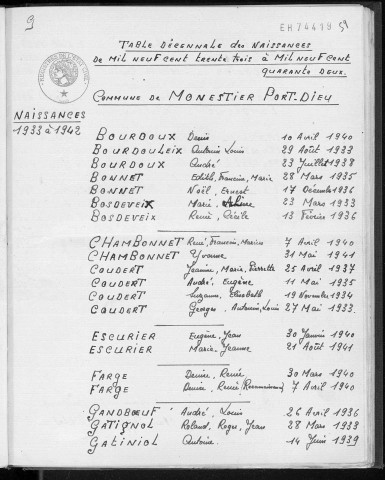 9
EH 74499 51
TABLE DÉCENNALE des NAISSANCES
DE MIL NEUF CENT TRENTE TROIS à MIL NEUF CENT
QUARANTE DEUX.
COMMUNE DE MONESTIER PORT-DIEU
NAISSANCES
1933 à 1942
BOURDOUX Denis 10 Avril 1940
BOURDOULEIX Antonin Louis 29 Août 1933
BOURDOUX André 23 Juillet 1938
BONNET Edith, Francine, Marie 28 Mars 1935
BONNET Noël, Ernest 17 Décembre 1936
BOSDEVEIX Marie 23 Mars 1933
BOSDEVEIX René, Cécile 13 Février 1936
CHAMBONNET René, Francois, Marius 7 Avril 1940
CHAMBONNET Yvonne 31 Mai 1941
COUDERT Jeanne, Marie, Pierrette 25 Avril 1937
COUDERT André, Eugène 11 Mai 1935
COUDERT Suzanne, Elisabeth 19 Novembre 1934
COUDERT Georges, Antonin, Louis 27 Mai 1933.
ESCURIER Eugène, Jean 30 Janvier 1940
ESCURIER Marie, Jeanne 21 Août 1941
FARGE Denise, Renée 30 Mars 1940
FARGE Denise, Renée (Reconnaissance) 7 Avril 1940
GANDBŒUF André, Louis 26 Avril 1936
GATIGNOL Roland, Roger, Jean 28 Mars 1933
GATINIOL Antoine 14 Juin 1939